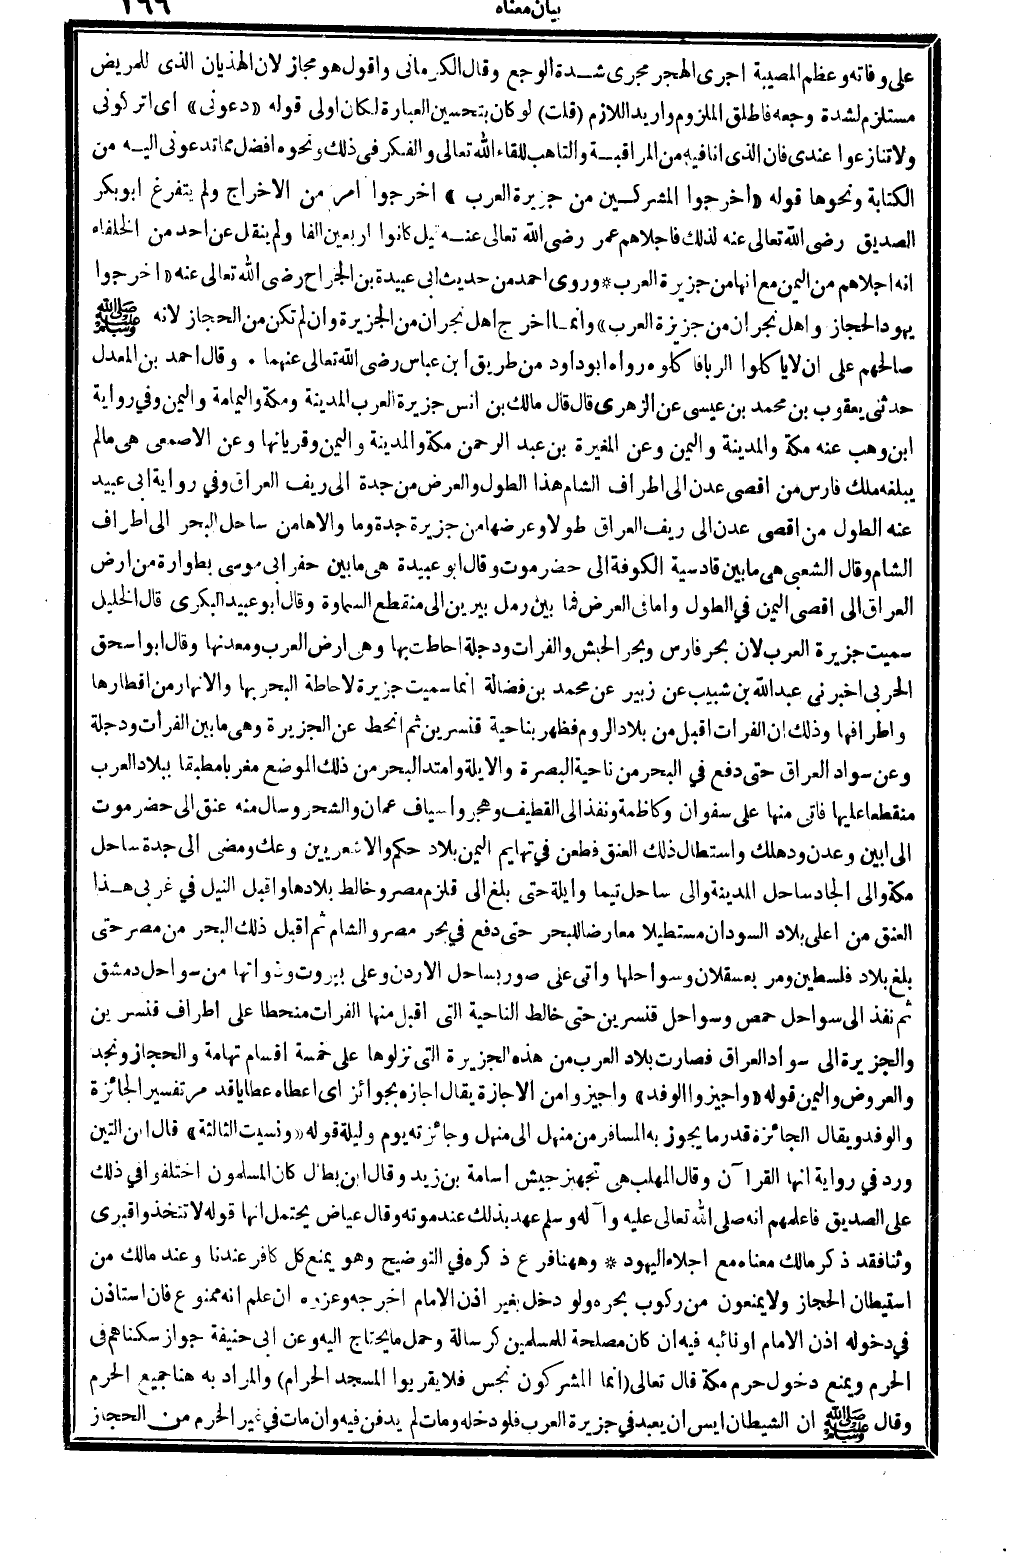 بيان معناه
على وفاته وعظم المصيبة اجرى الهجر مجرى شدة الوجع وقال الكرمانى واقول هو مجاز لان الهذيان الذى للمريض
مستلزم لشدة وجعه فاطلق الملزوم واريد اللازم (قلت) لو كان بتحسين العبارة لكان اولى قوله «دعونى» اى اتركونى
ولا تنازعوا عندى فان الذى انا فيه من المراقبة والتاهب للقاء الله تعالى والفكر فى ذلك ونحوه افضل مما تدعونى اليه من
الكتابة ونحوها قوله «أخرجوا المشركين من جزيرة العرب» اخرجوا امر من الاخراج ولم يتفرغ ابوبكر
الصديق رضى الله تعالى عنه لذلك فاجلاهم عمر رضى الله تعالى عنه قيل كانوا اربعين الفا ولم ينقل عن احد من الخلفاء
انه اجلاهم من اليمن مع انها من جزيرة العرب * وروى احمد من حديث ابى عبيدة بن الجراح رضى الله تعالى عنه «اخرجوا
يهود الحجاز واهل نجران من جزيزة العرب» وانما اخرج اهل نجران من الجزيرة وان لم تكن من الحجاز لانه ﷺ
صالحهم على ان لا ياكلوا الربا فاكلوه رواه ابو داود من طريق ابن عباس رضى الله تعالى عنهما . وقال احمد بن المعدل
حدثنى يعقوب بن محمد بن عيسى عن الزهرى قال قال مالك بن انس جزيرة العرب المدينة ومكة واليمامة واليمن وفي رواية
ابن وهب عنه مكة والمدينة واليمن وعن المغيرة بن عبد الرحمن مكة والمدينة واليمن وقرياتها وعن الاصمعى هى مالم
يبلغه ملك فارس من اقصى عدن الى اطراف الشام هذا الطول والعرض من جدة الى ريف العراق وفي رواية ابى عبيد
عنه الطول من اقصى عدن الى ريف العراق طولا وعرضها من جزيرة جدة وما والاها من ساحل البحر الى اطراف
الشام وقال الشعبى هى ما بين قادسية الكوفة الى حضرموت وقال ابو عبيدة هى ما بين حفر ابى موسى بطوارة من ارض
العراق الى اقصى اليمن في الطول واما فى العرض فما بين رمل يبرين الى منقطع السماوة وقال أبو عبيد البكرى قال الخليل
سميت جزيرة العرب لان بحر فارس وبحر الحبش والفرات ودجلة احاطت بها وهى ارض العرب ومعدنها وقال ابو اسحق
الحربى اخبرنى عبد الله بن شبيب عن زبير عن محمد بن فضالة انما سميت جزيرة لاحاطة البحر بها والانهار من اقطارها
واطرافها وذلك ان الفرات اقبل من بلاد الروم فظهر بناحية قنسرين ثم انحط عن الجزيرة وهى ما بين الفرات ودجلة
وعن سواد العراق حتى دفع في البحر من ناحية البصرة والايلة وامتد البحر من ذلك الموضع مغربا مطيفا ببلاد العرب
منقطعا عليها فاتى منها على سفوان وكاظمة ونفذ الى القطيف وهجر وأسياف عمان والشحر وسال منه عنق الى حضرموت
الى ابين وعدن ودهلك واستطال ذلك العنق فطعن في تهايم اليمن بلاد حكم والاشعريين وعك ومضى الى جدة ساحل
مكة والى الجاد ساحل المدينة والى ساحل تيما وايلة حتى بلغ الى قلزم مصر وخالط بلادها واقبل النيل في غربى هذا
العنق من أعلى بلاد السودان مستطيلا معارضا للبحر حتى دفع في بحر مصر والشام ثم اقبل ذلك البحر من مصر حتى
بلغ بلاد فلسطين ومر بعسقلان وسواحلها واتى على صور بساحل الاردن وعلى بيروت وذواتها من سواحل دمشق
ثم نفذ الى سواحل حمص وسواحل قنسرين حتى خالط الناحية التى اقبل منها الفرات منحطا على اطراف قنسرين
والجزيرة الى سواد العراق فصارت بلاد العرب من هذه الجزيرة التى نزلوها على خمسة اقسام تهامة والحجاز ونجد
والعروض واليمن قوله «واجيزوا الوفد» واجيزوا من الاجازة يقال اجازه بجوائز اى اعطاه عطايا قد مر تفسير الجائزة
والوفد ويقال الجائزة قدر ما يجوز به المسافر من منهل الى منهل وجائزته يوم وليلة قوله «ونسيت الثالثة» قال ابن التين
ورد في رواية انها القرآن وقال المهلب هى تجهيز جيش اسامة بن زيد وقال ابن بطال كان المسلمون اختلفوا في ذلك
على الصديق فاعلمهم انه صلى الله تعالى عليه وآله وسلم عهد بذلك عند موته وقال عياض يحتمل انها قوله لا تتخذوا قبرى
وثنا فقد ذكر مالك معناه مع اجلاء اليهود * وههنا فرع ذكره في التوضيح وهو يمنع كل كافر عندنا وعند مالك من
استيطان الحجاز ولا يمنعون من ركوب بحره ولو دخل بغير اذن الامام اخرجه وعزره ان علم انه ممنوع فان استاذن
في دخوله اذن الامام او نائبه فيه ان كان مصلحة للمسلمين كرسالة وحمل ما يحتاج اليه وعن ابى حنيفة جواز سكناهم فى
الحرم ويمنع دخول حرم مكة قال تعالى (انما المشركون نجس فلا يقربوا المسجد الحرام) والمراد به هنا جميع الحرم
وقال ﷺ ان الشيطان ايس ان يعبد في جزيرة العرب فلو دخله ومات لم يدفن فيه وان مات في غير الحرم من الحجاز